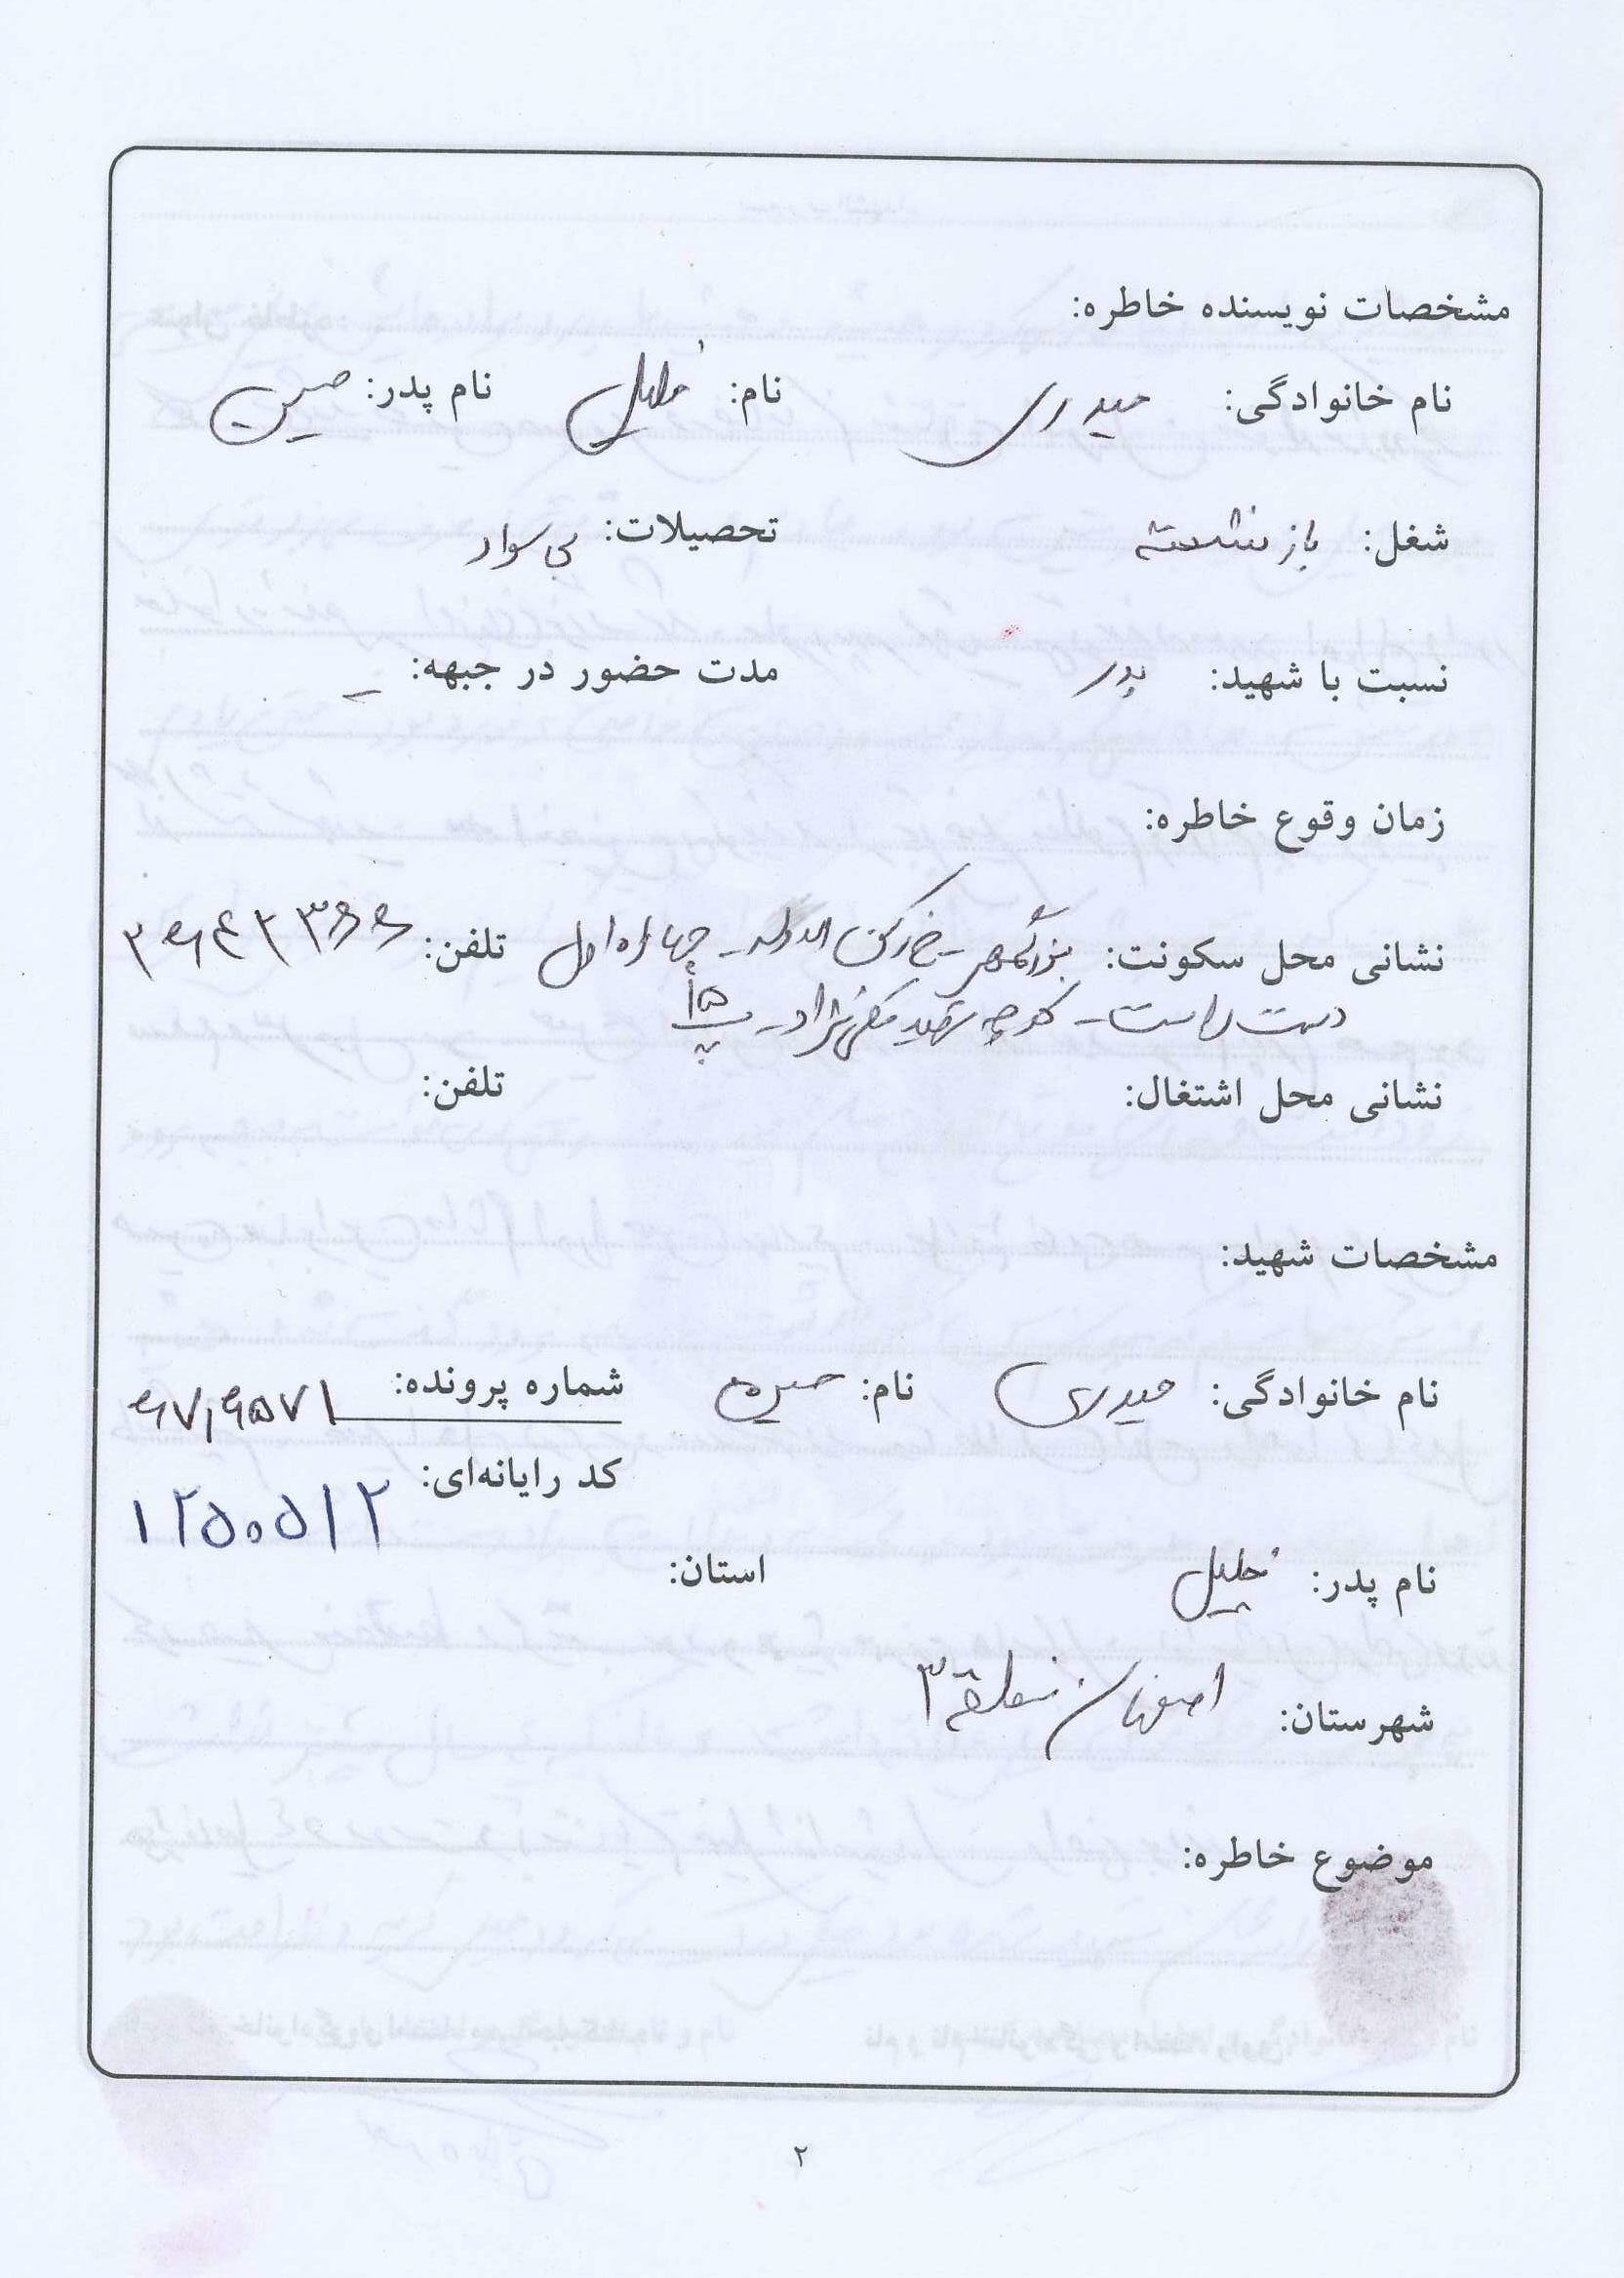 مشخصات نویسنده خاطره:
نام خانوادگی: حیدری نام: خلیل نام پدر: حسین
شغل: بازنشسته تحصیلات: بی سواد
نسبت با شهید: پدر مدت حضور در جبهه: –
زمان وقوع خاطره:
نشانی محل سکونت: بزرگمهر - خ رکن الدوله - چهارراه اول تلفن:
دست راست - کوچه شهید - پ ۱۵
نشانی محل اشتغال: تلفن:
مشخصات شهید:
نام خانوادگی: حیدری نام: حسین شماره پرونده:
کد رایانه‌ای: ۱۲۵۰۵۱۲
نام پدر: خلیل استان:
شهرستان: اصفهان منطقه ۳
موضوع خاطره:
۲